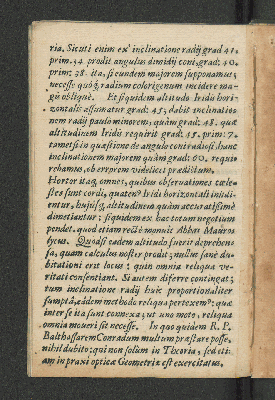 ria. Sicuti enim ex inclinatione radij grad 41.
prim. 34 prodit angulus dimidij coni, grad: 40.
prim: 38. ita, si eundem majorem supponamus,
necesse quoq; radium colorigenum incidere ma-
gis obliquè. Et siquidem altitudo Iridis hori-
zontalis assumatur grad: 45. dabit inclinatio-
nem radij paulo minorem, quàm grad: 48. quæ
altitudinem Iridis requirit grad: 45. prim: 7.
tametsi in quæstione de angulo coni radiosi, hanc
inclinationem majorem quàm grad: 60. requi-
rebamus, ob errorem videlicet præditum.
Hortor itaq; omnes, quibus observationes cæle-
stes sunt cordi, quatenus Iridi horizontali insidi-
entur, hujusq; altitudinem quàm accuratissimè
dimetiantur; siquidem ex hac totum negotium
pendet. quod etiam rectè monuit Abbas Mauro-
lycus. Quòd si eadem altitudo fuerit deprehen-
sa, quam calculus noster prodit; nullus sanè du-
bitationi erit locus; quin omnia reliqua ve-
ritati consentiant. Si autem differre contingat;
tum inclinatione radij huic proportionaliter
sumptâ, eâdem methodo reliqua pertexemus: quæ
inter se ita sunt connexa; ut uno moto, reliqua
omnia moveri sit necesse. In quo quidem R. P.
Balthassarem Conradum multum præstare posse,
nihil dubito: qui non solùm in Theoria, sed eti-
am in praxi opticæ Geometriæ est exercitatus.